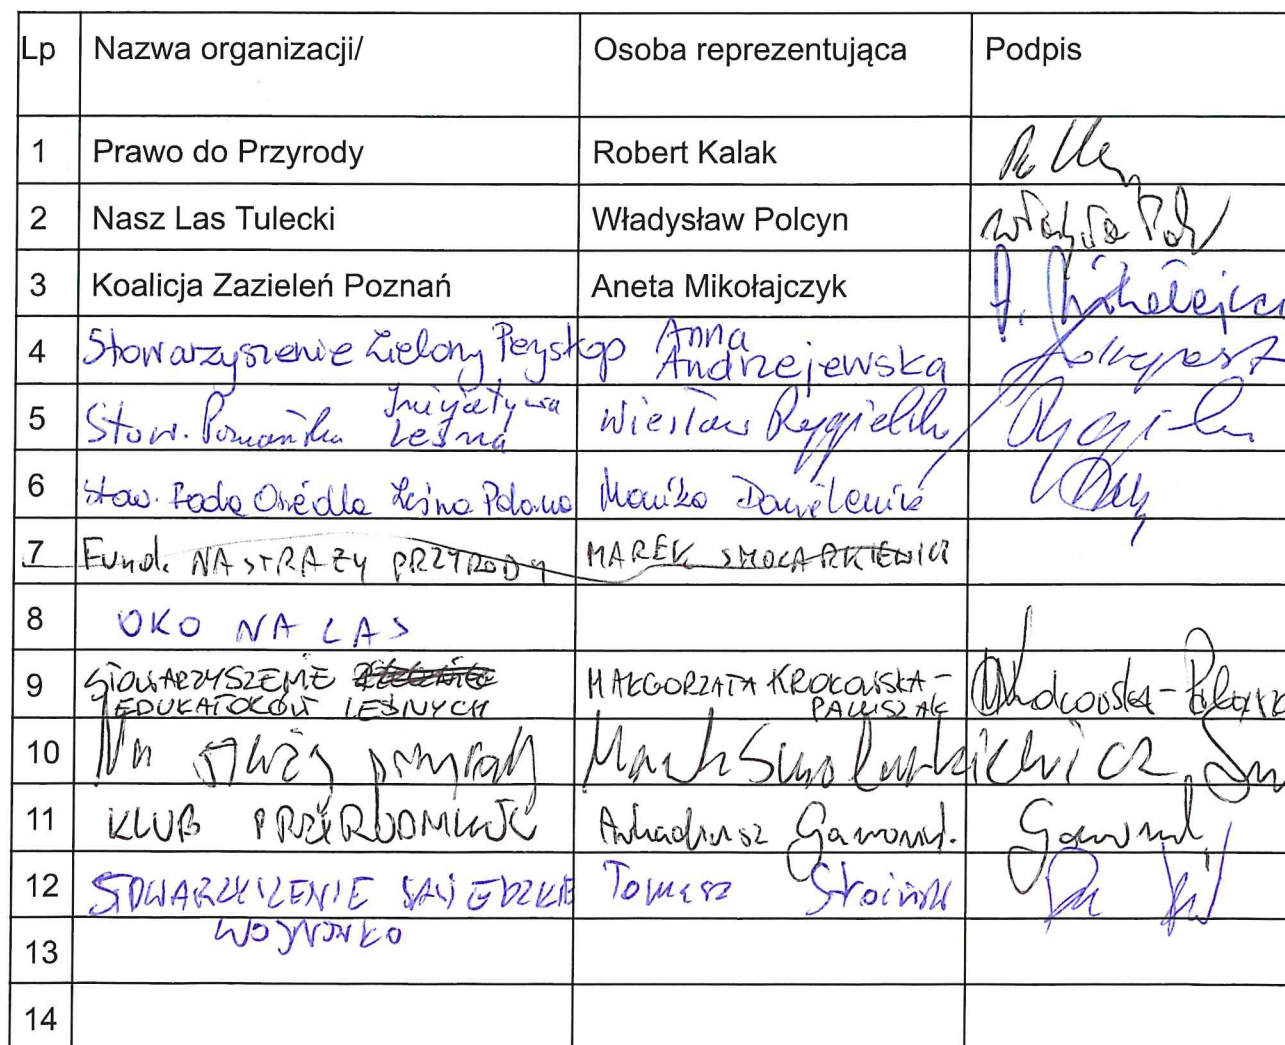 Lp Nazwa organizacji/ Osoba reprezentująca Podpis
1 Prawo do Przyrody Robert Kalak
2 Nasz Las Tulecki Władysław Polcyn
3 Koalicja Zazieleń Poznań Aneta Mikołajczyk
4 Stowarzyszenie Zielony Peryskop Anna
Andrzejewska
5 Stow. Poznańska Inicjatywa
Leśna Wiesław Rygielski
6 Stow. Rada Osiedla Leśna Polana Monika Danielewicz
7 Fund. NA STRAŻY PRZYRODY MAREK SMOLARKIEWICZ
8 OKO NA LAS
9 STOWARZYSZENIE
EDUKATORÓW LEŚNYCH MAŁGORZATA KROKOWSKA-
PALUSZAK
10 Na straży przyrody Marek Smolarkiewicz
11 KLUB PRZYRODNIKÓW Arkadiusz
12 STOWARZYSZENIE SĄSIEDZKIE Tomasz Stroiński
13
14